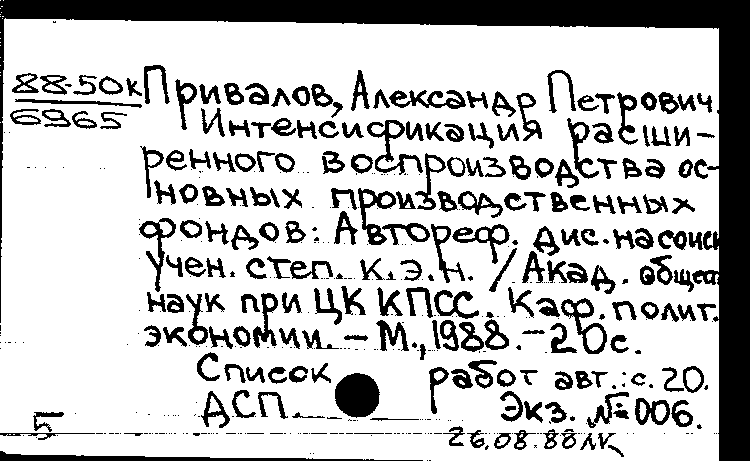 88-50к Привалов, Александр Петрович.
6965 Интенсификация расши-
ренного воспроизводства ос-
новных производственных
фондов: Автореф. дис. на соиск
учен. степ. к.э.н. / Акад. общест
наук при ЦК КПСС. Каф. полит.
экономии. – М., 1988. – 20 с.
Список работ авт.: с. 20.
ДСП. Экз. № 006.
5
26.08.88